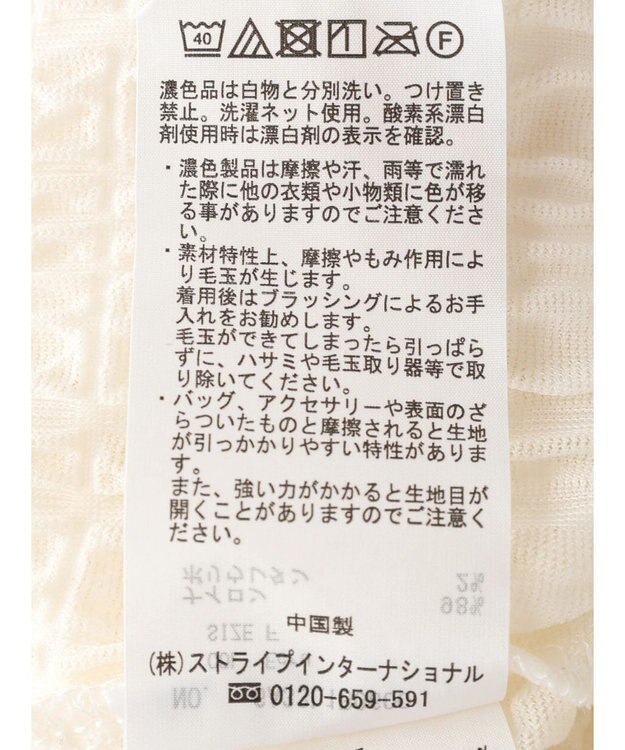 40 F
濃色品は白物と分別洗い。つけ置き
禁止。洗濯ネット使用。酸素系漂白
剤使用時は漂白剤の表示を確認。
・濃色製品は摩擦や汗、雨等で濡れ
た際に他の衣類や小物類に色が移
る事がありますのでご注意くださ
い。
・素材特性上、摩擦やもみ作用によ
り毛玉が生じます。
着用後はブラッシングによるお手
入れをお勧めします。
毛玉ができてしまったら引っぱら
ずに、ハサミや毛玉取り器等で取
り除いてください。
・バッグ、アクセサリーや表面のざ
らついたものと摩擦されると生地
が引っかかりやすい特性がありま
す。
また、強い力がかかると生地目が
開くことがありますのでご注意く
ださい。
ナイロン 98%
ポリウレタン 2%
SIZE F
中国製
(株)ストライプインターナショナル
NO.
0120-659-591